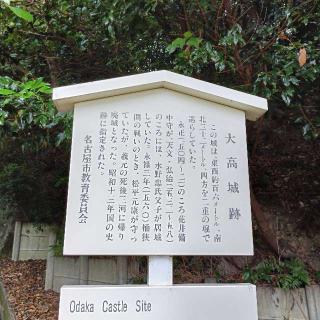 大高城跡
この城は、東西約百六メートル、南
北三十二メートル、四方を二重の堀で
巡らしていた。
永正(一五〇四〜二一)のころ花井備
中守が、天文・弘治(一五三二〜五八)
のころには、水野忠氏父子が居城
していた。永禄三年(一五六〇)桶狭
間の戦いのとき、松平元康が守っ
ていたが、義元の死後三河に帰り
廃城となった。昭和十三年国の史
跡に指定された。
名古屋市教育委員会
Odaka Castle Site